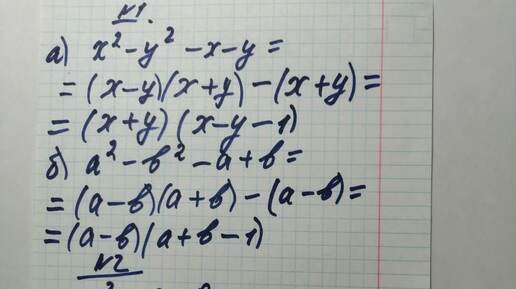 №1.
а) x² - y² - x - y =
= (x-y)(x+y) - (x+y) =
= (x+y)(x-y-1)
б) a² - b² - a + b =
= (a-b)(a+b) - (a-b) =
= (a-b)(a+b-1)
№2